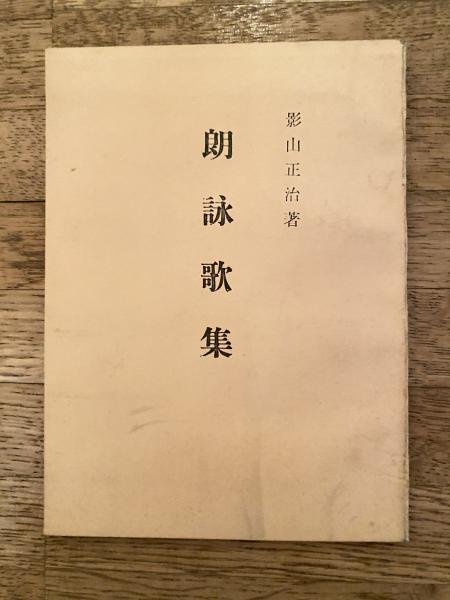 影山正治著
朗詠歌集